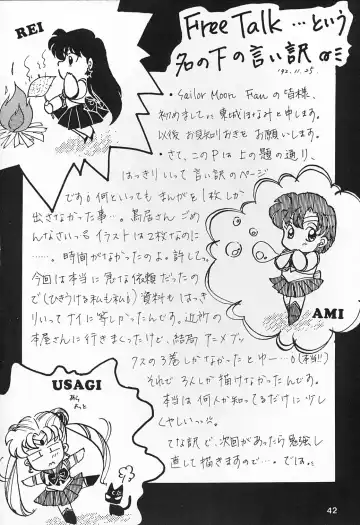 REI
Free Talk …という
名の下の言い訳
'92.11.25.
・Sailor Moon Fan の皆様、
初めまして、東城はなみと申します。
以後 お見知りおきを お願いします。
・さて、このPは上の題の通り、
はっきりいって 言い訳のページ
です。何といってもまんがを1枚しか
出さなかった事…。鳥居さん ごめ
んなさいっ イラストは2枚なのに
……。時間がなかったのよ。許して。
今回は本当に急な依頼だったの
で(ひきうける私も私)資料も はっき
りいってナイに等しかったんです。近所の
本屋さんに行きまくったけど、結局 アニメブッ
クスの3巻しかなかったとゆー…。(本当!!)
それで 3人しか描けなかったんです。
本当は 何人か知ってるだけに 少し
くやしいっ
てな訳で、次回があったら勉強し
直して描きますので…。では。
AMI
USAGI
42